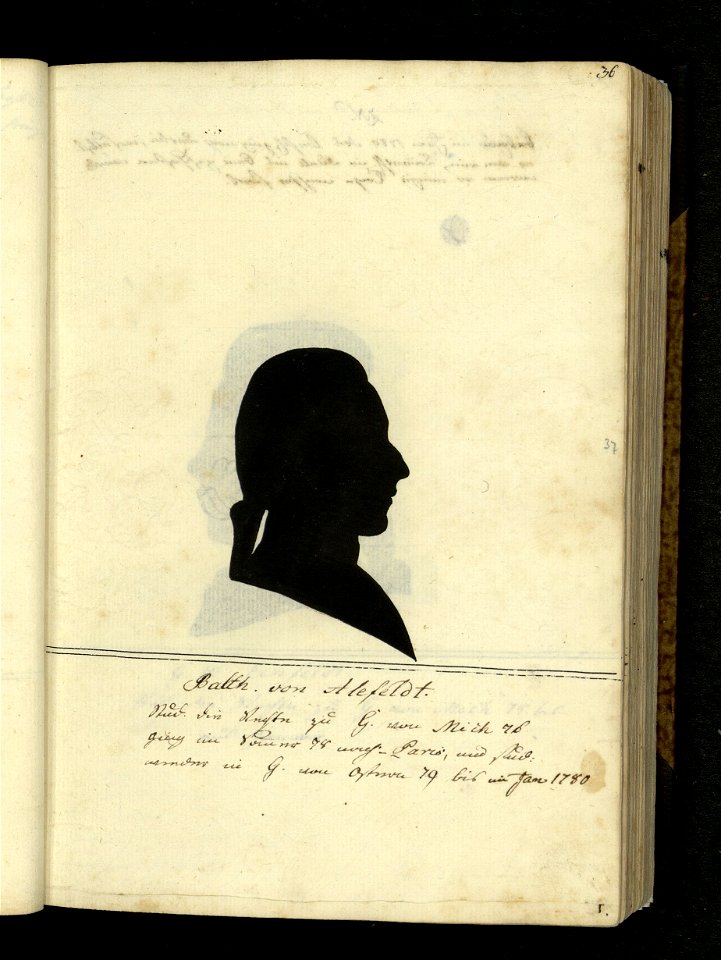 36
37
Balth. von Alefeldt.
Stud. die Rechte zu G. von Mich 76
ging im Sommer 78 nach Paris, und stud:
wieder in G. von Ostern 79 bis im Jan 1780
1.